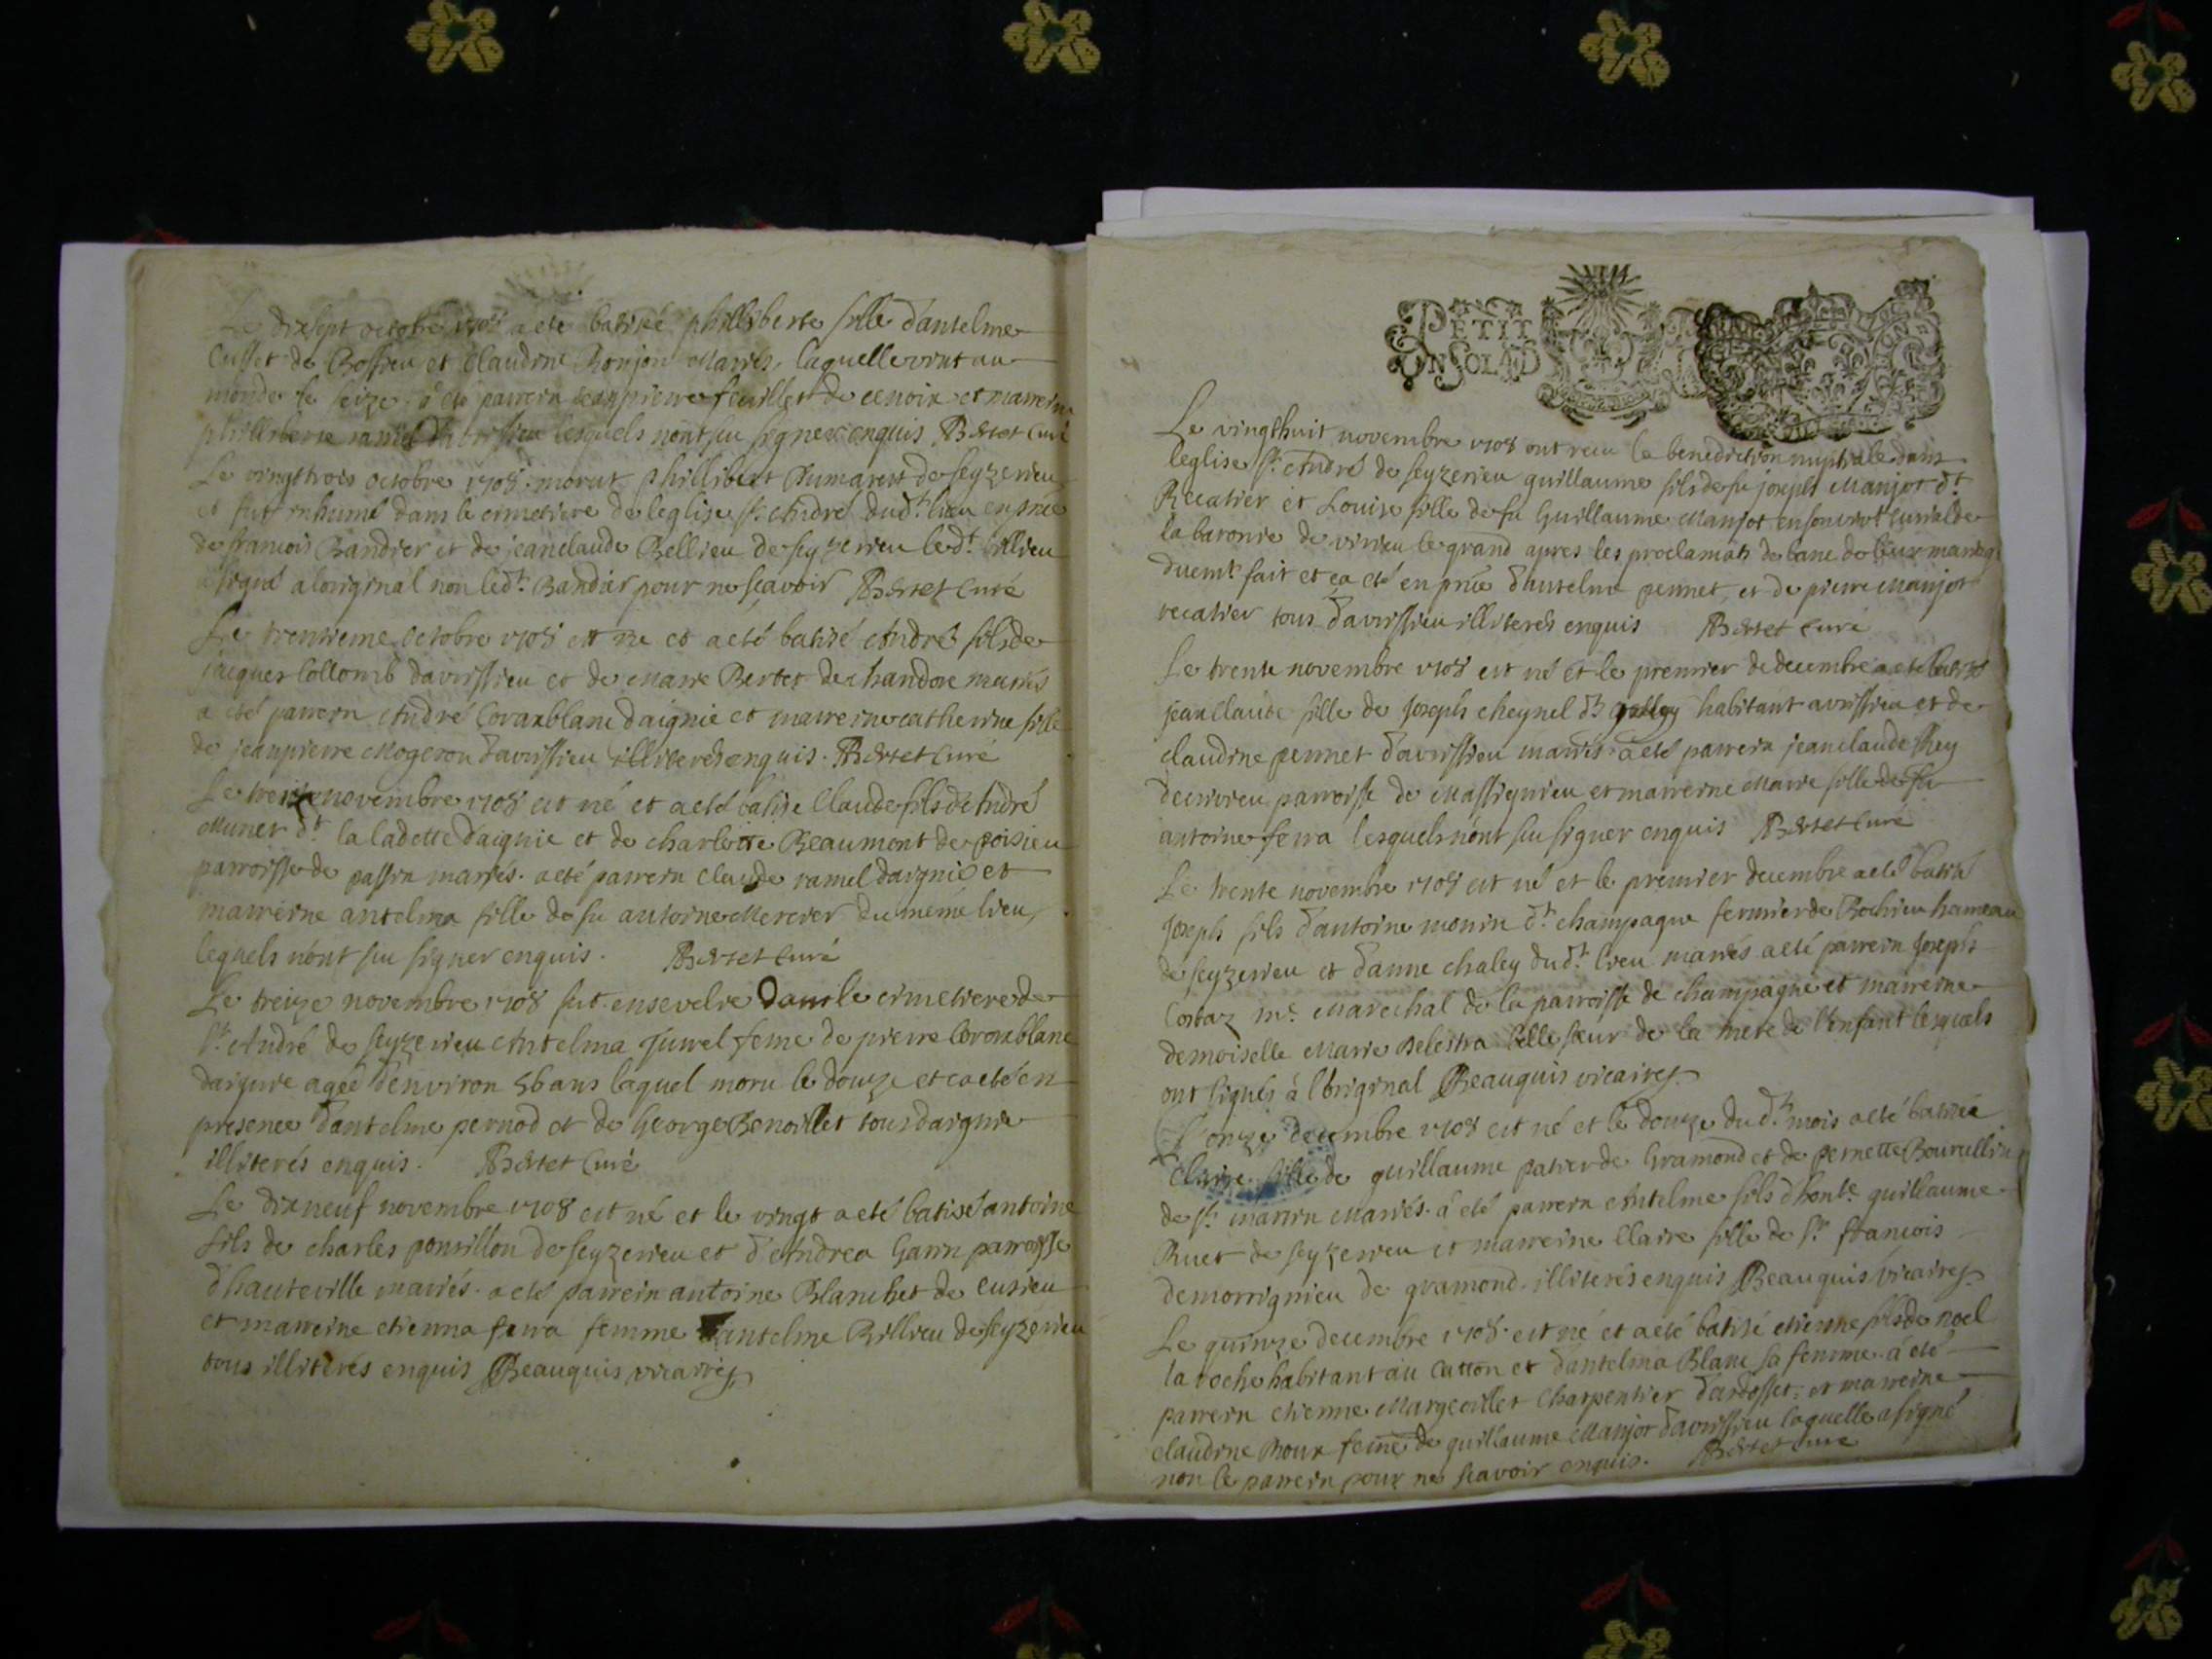 Le dixsept octobre 1708 a eté batisé philliberte fille d'antelme
Cusset de Bossieu et Claudine Bonjon Mariés, laquelle vint au
monde le seize. a été parrein jean pierre feuillet de cenoix et marreine
philliberte ramel lesquels n'ont su signer enquis Bertet Curé
Le vingttrois octobre 1708. morut phillibert Dumarest de seyzerieu
et fut inhumé dans le cimetiere de leglise st. André dud.t lieu en pnce
de francois Bandier et de jeanclaude Bellieu de seyzerieu led.t billieu
a signé a loriginal non led.t Bandier pour ne scavoir Bertet Curé
Le trentieme octobre 1708 est né et a eté batisé André fils de
jacques Collomb davrissieu et de Marie Bertet de chandore mariés
a eté parrein André Coraxblanc daignie et marreine catherine fille
de jeanpierre Mogeron d'avrissieu illiterés enquis. Bertet Curé
Le treize novembre 1708 est né et a eté batisé Claude fils d'André
Munet d.t la ladette daignie et de charlotte Beaumont de poisieu
parroisse de passin mariés. a eté parrein Claude ramel daignie et
marreine antelma fille de fu antoine Mercier du méme lieu,
lequels n'ont su signer enquis. Bertet Curé
Le treize novembre 1708 fut ensevelie dans le cimetiere de
st. André de seyzerieu Antelma Juvrel feme de pierre Coroxblanc
daignie agée d'environ 56 ans laquel moru le douze et ca eté en
presence d'antelme pernod et de George Benoillet tous daignie
illiterés enquis. Bertet Curé
Le dixneuf novembre 1708 est né et le vingt a eté batisé antoine
fils de charles ponsillon de seyzerieu et d'Andrea Garin parroisse
d'hauteville mariés. a eté parrein antoine Blanchet de cusieu
et marreine etienna ferra femme d'antelme Billieu de seyzerieu
tous illiterés enquis Beauquis vicaire
PETIT
UN SOL
Le vingthuit novembre 1708 ont recu la benediction nuptiale dans
leglise st. André de seyzerieu guillaume fils de fu joseph Manjot d.t
Recatier et Louise fille de fu Guillaume Manjot en son vivt curial de
la baronie de virieu le grand apres les proclamats de banc de leur mariage
duem.t fait et ca eté en pnce d'antelme pennet, et de pierre Manjot
recatier tous d'avrissieu illiterés enquis Bertet Curé
Le trente novembre 1708 est né et le premier de decembre a eté batisé
jeanclaude fille de Joseph cheynel d.t habitant avrissieu et de
claudine pennet d'avrissieu mariés. a eté parrein jeanclaude they
decrivieu parroisse de Massignieu et marreine Marie fille de fu
antoine ferra lesquels n'ont su signer enquis Bertet Curé
Le trente novembre 1708 est né et le premier decembre a eté batisé
Joseph fils d'antoine monin d.t champagne fermier de Rochieu hameau
de seyzerieu et d'anne chaley dud.t lieu mariés a eté parrein Joseph
Costaz m.e Marechal de la parroisse de champagne et marreine
demoiselle Marie Belestra belle sœur de la mere de l'enfant lesquels
ont signés à l'original Beauquis vicaire
L'onze decembre 1708 est né et le douze dud.t mois a eté batisée
Claire fille de guillaume patier de Gramond et de pernette Bourellin
de st. martin Mariés. a eté parrein Antelme fils d'hon.le guillaume
Ruet de seyzerieu et marreine Claire fille de s.r francois
demorrignieu de gramond. illiterés enquis Beauquis vicaire
Le quinze decembre 1708. est né et a eté batisé etienne fils de noel
la roche habitant au Catton et d'antelma Blanc sa femme. a eté
parrein etienne Margeoillet Charpentier d'ardosset. et marreine
claudine Roux feme de guillaume Manjot d'avrissieu laquelle a signé
non le parrein pour ne scavoir enquis. Bertet Curé